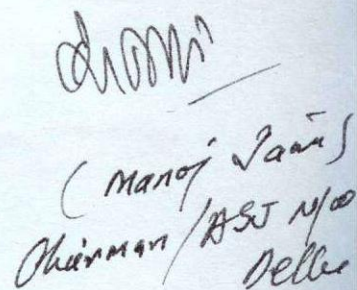 ( Manoj Jain )
Chairman / ASJ
Delhi